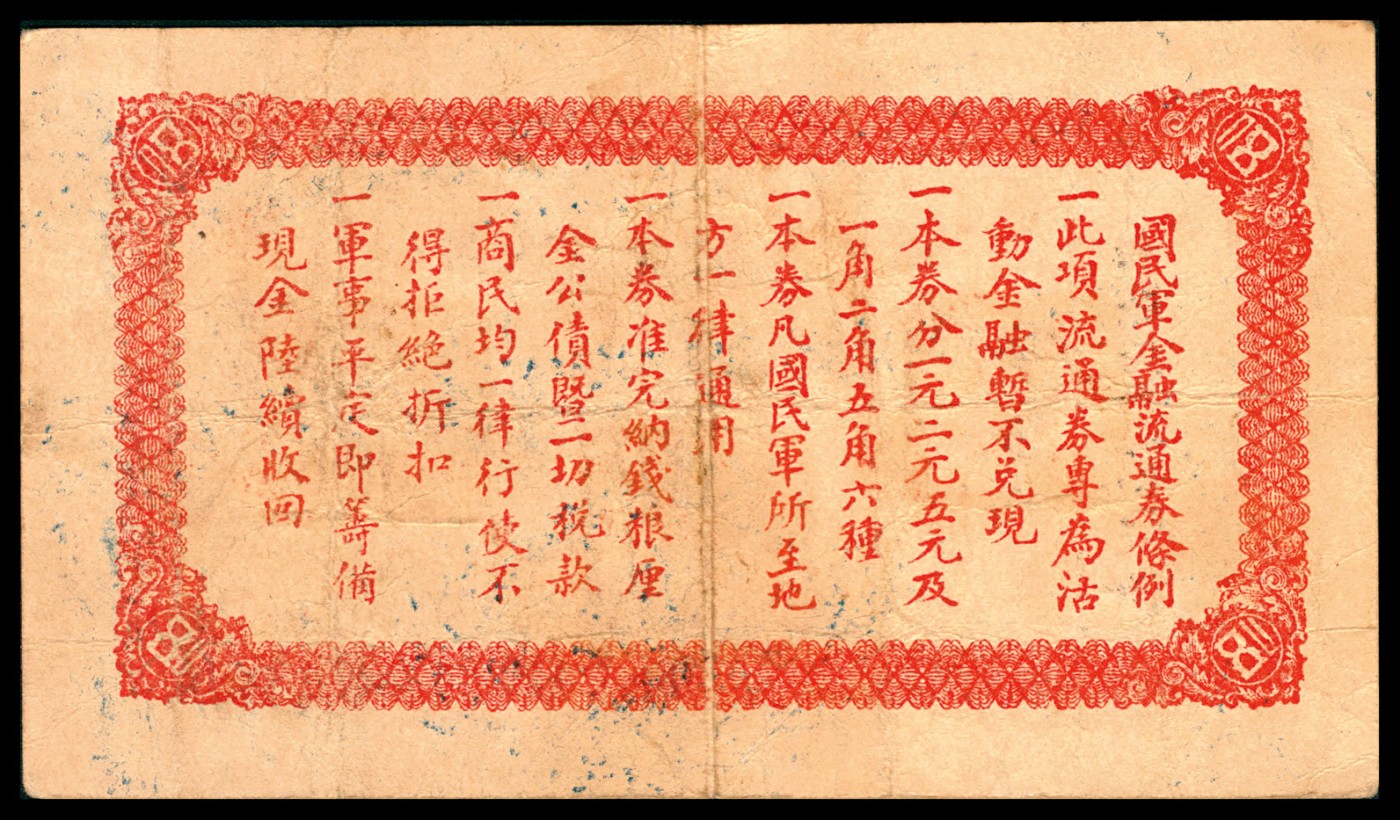 國民軍金融流通券條例
一此項流通券專為活
動金融暫不兑現
一本券分一元二元五元及
一角二角五角六種
一本券凡國民軍所至地
方一律通用
一本券准完納錢粮厘
金公債暨一切稅款
一商民均一律行使不
得拒絶折扣
一軍事平定即籌備
現金陸續收回